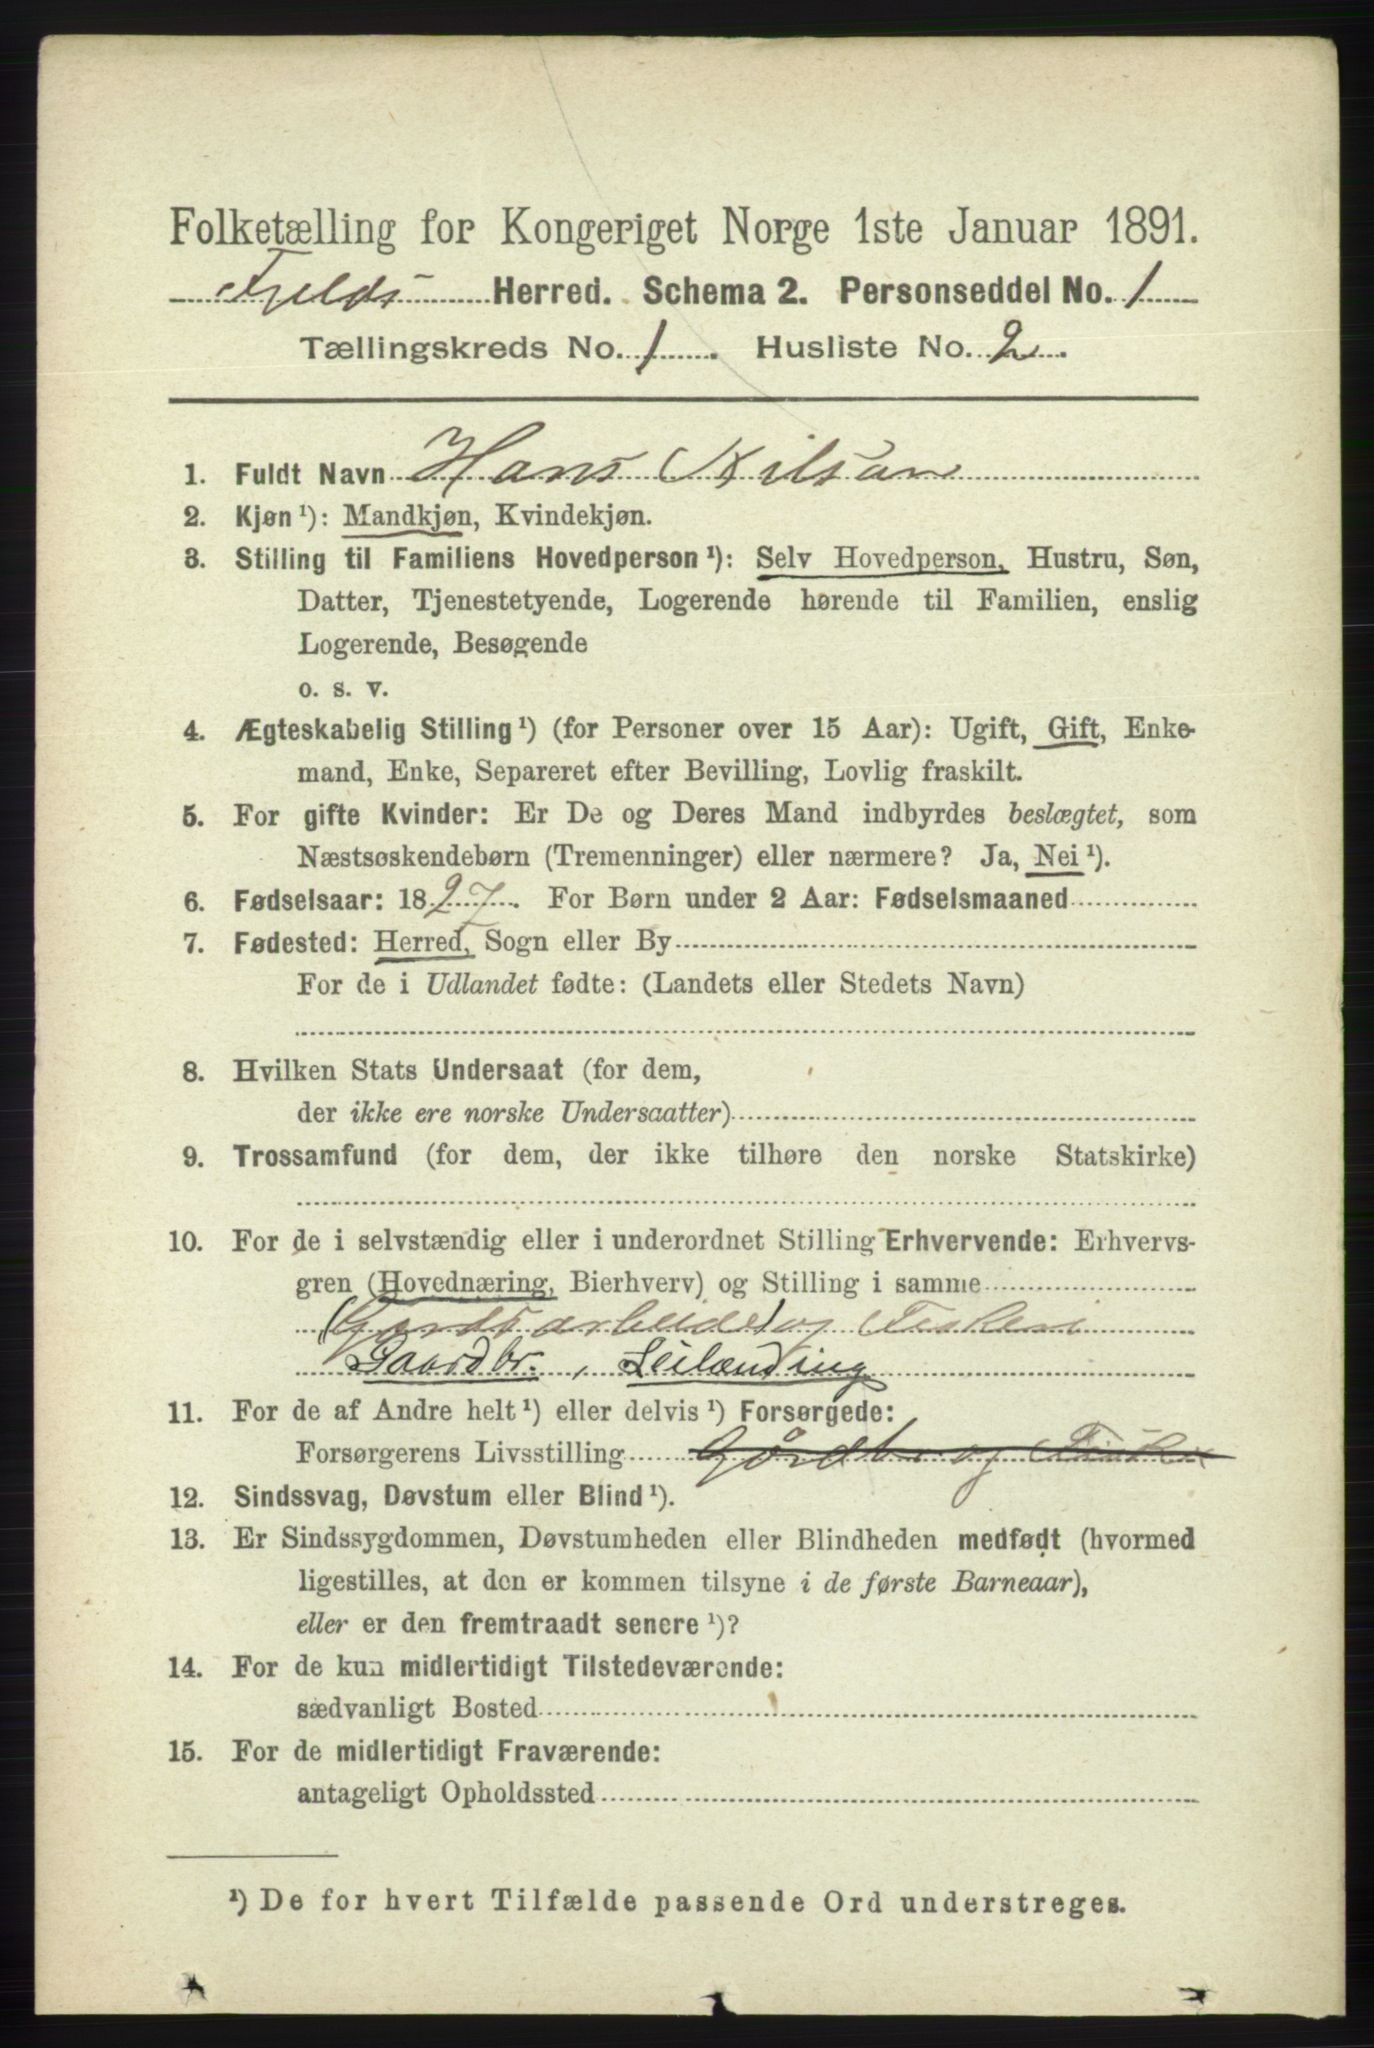 Folketælling for Kongeriget Norge 1ste Januar 1891.
Fjelds Herred. Schema 2. Personseddel No. 1
Tællingskreds No. 1. Husliste No. 2.
1. Fuldt Navn Hans Nilsen
2. Kjøn ¹): Mandkjøn, Kvindekjøn.
3. Stilling til Familiens Hovedperson ¹): Selv Hovedperson, Hustru, Søn,
Datter, Tjenestetyende, Logerende hørende til Familien, enslig
Logerende, Besøgende
o. s. v.
4. Ægteskabelig Stilling ¹) (for Personer over 15 Aar): Ugift, Gift, Enke-
mand, Enke, Separeret efter Bevilling, Lovlig fraskilt.
5. For gifte Kvinder: Er De og Deres Mand indbyrdes beslægtet, som
Næstsøskendebørn (Tremenninger) eller nærmere? Ja, Nei ¹).
6. Fødselsaar: 1827. For Børn under 2 Aar: Fødselsmaaned
7. Fødested: Herred, Sogn eller By
For de i Udlandet fødte: (Landets eller Stedets Navn)
8. Hvilken Stats Undersaat (for dem,
der ikke ere norske Undersaatter)
9. Trossamfund (for dem, der ikke tilhøre den norske Statskirke)
10. For de i selvstændig eller i underordnet Stilling Erhvervende: Erhvervs-
gren (Hovednæring, Bierhverv) og Stilling i samme
(Gordsarbeide) og Fiskeri
Gaardbr., Leilænding
11. For de af Andre helt ¹) eller delvis ¹) Forsørgede:
Forsørgerens Livsstilling Gårdbr og Fisker
12. Sindssvag, Døvstum eller Blind ¹).
13. Er Sindssygdommen, Døvstumheden eller Blindheden medfødt (hvormed
ligestilles, at den er kommen tilsyne i de første Barneaar),
eller er den fremtraadt senere ¹)?
14. For de kun midlertidigt Tilstedeværende:
sædvanligt Bosted
15. For de midlertidigt Fraværende:
antageligt Opholdssted
¹) De for hvert Tilfælde passende Ord understreges.